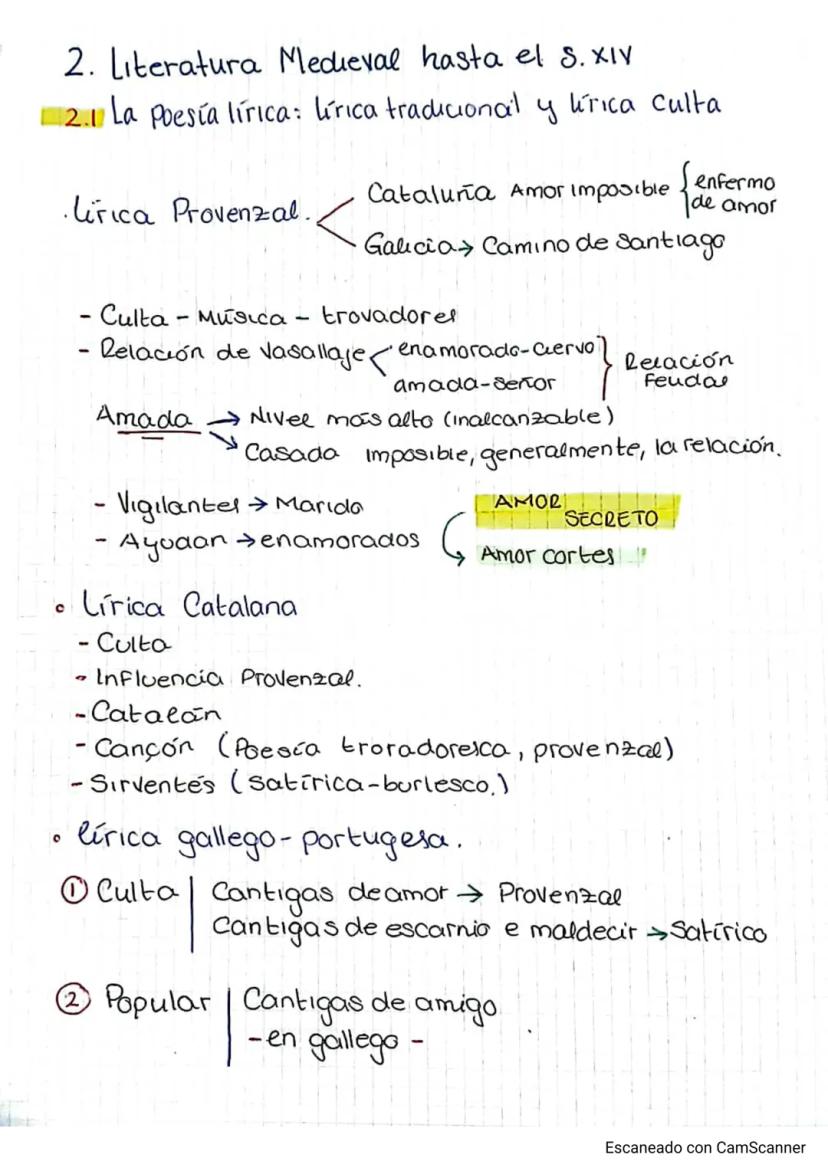 2. Literatura Medieval hasta el S. XIV
2.1 La poesía lírica: lírica tradicional y lírica culta
. lírica Provenzal.
Cataluña Amor imposible { enfermo
de amor
Galicia → Camino de Santiago
- Culta - Música - trovadores
- Relación de vasallaje < enamorado-ciervo
amada-señor
} Relación
feudal
Amada → Nivel más alto (inalcanzable)
↘ Casada imposible, generalmente, la relación.
- Vigilantes → Marido
- Ayudan → enamorados
AMOR
SECRETO
Amor cortes
• Lírica Catalana
- Culta
- Influencia Provenzal.
- Catalán
- Cançón (Poesía troradoresca, provenzal)
- Sirventés (satírica-burlesco.)
• lírica gallego-portugesa.
① Culta | Cantigas de amor → Provenzal
Cantigas de escarnio e maldecir → Satírico
② Popular | Cantigas de amigo
- en gallego -
Escaneado con CamScanner